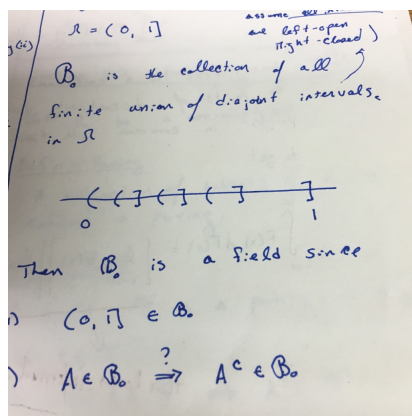 assume all int
Ω = (0, 1]
are left-open
right-closed)
g(ii)
B₀ is the collection of all
finite union of disjoint intervals.
in Ω
( ( ] ( ] ( ] ]
0 1
Then B₀ is a field since
i) (0, 1] ∈ B₀
?
) A ∈ B₀ ⟹ Aᶜ ∈ B₀